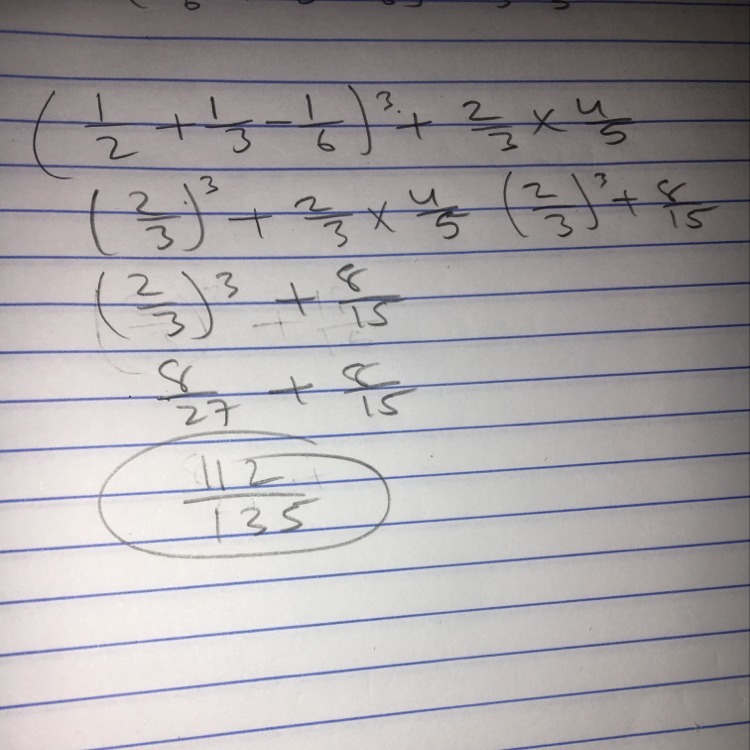 (1/2 + 1/3 - 1/6)³ + 2/3 × 4/5
(2/3)³ + 2/3 × 4/5 (2/3)³ + 8/15
(2/3)³ + 8/15
8/27 + 8/15
112/135